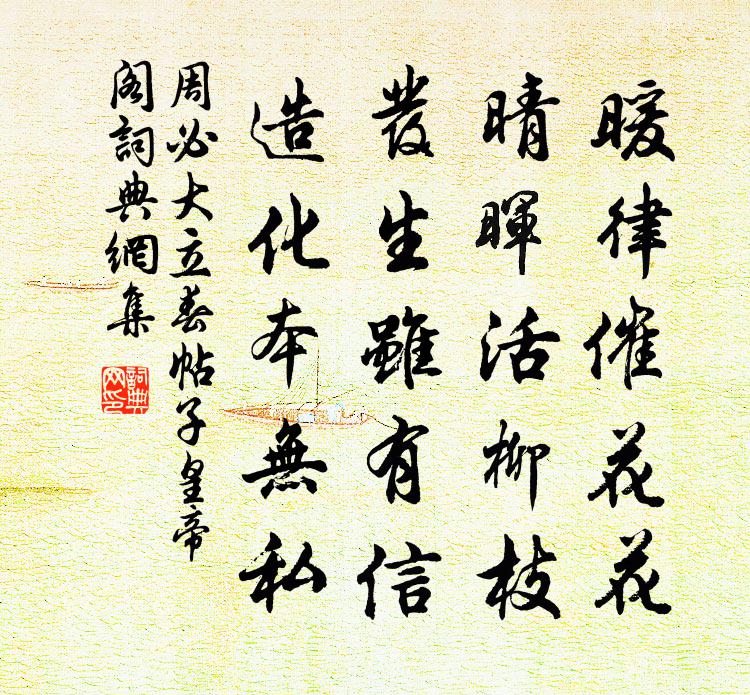 暖律催花花
晴暉活柳枝
發生雖有信
造化本無私
周必大立春帖子皇帝
閣詞典網集
詞典網印